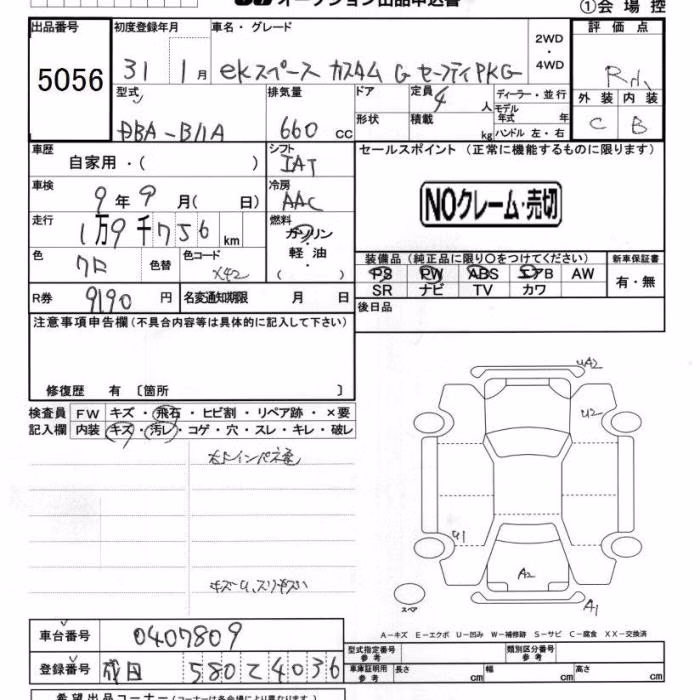 オークション出品申込書
①会場控
出品番号 初度登録年月 車名・グレード 2WD・4WD 評価点
5056 31 1月 eKスペース カスタム G セーフティPKG
外装 内装
C B
型式 排気量 ドア 定員 4人 ディーラー・並行
モデル年式 年
形状 積載 kg ハンドル 左・右
DBA-B11A 660cc
車歴 自家用・( ) シフト IAT セールスポイント (正常に機能するものに限ります)
車検 9年9月( 日) 冷房 AAC
NOクレーム・売切
走行 1万9千756km 燃料 ガソリン・軽油 ( )
色 クロ 色替 色コード X42
装備品(純正品に限り○をつけてください) 新車保証書
PS PW ABS エアB AW 有・無
SR ナビ TV カワ
R券 9190円 名変通知期限 月 日 後日品
注意事項申告欄(不具合内容等は具体的に記入して下さい)
修復歴 有 〔箇所 〕
検査員 FW キズ・飛石・ヒビ割・リペア跡・×要
記入欄 内装 キズ・汚レ・コゲ・穴・スレ・キレ・破レ
UA2
U2
U1
A2
A1
スペア
A-キズ E-エクボ U-凹み W-補修跡 S-サビ C-腐食 XX-交換済
車台番号 0407809 型式指定番号 参考 類別区分番号 参考
登録番号 成田 580 て 4036 車庫証明用 参考 長さ cm 幅 cm 高さ cm
希望出品コーナー(コーナーは各会場により異なります。)